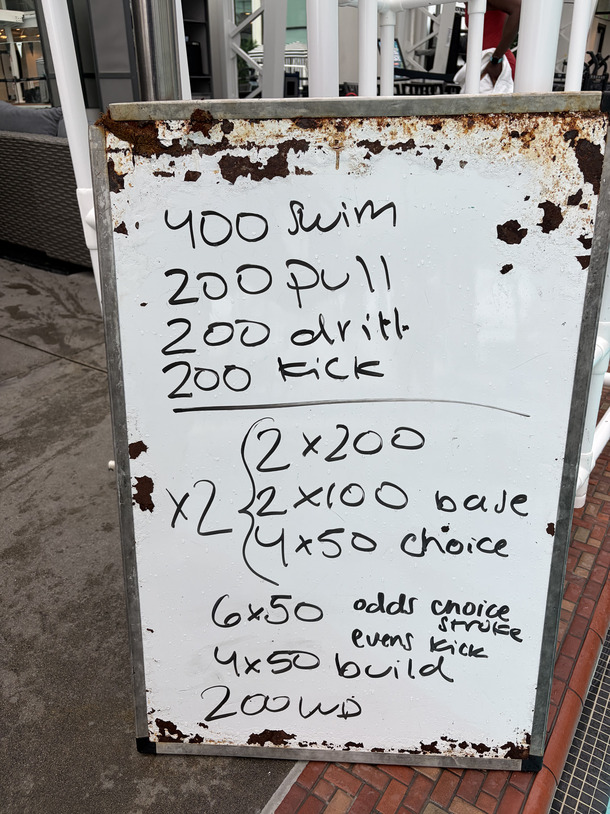 400 swim
200 pull
200 drill
200 kick
x2 { 2x200
2x100 base
4x50 choice
6x50 odds choice stroke
evens kick
4x50 build
200 WD